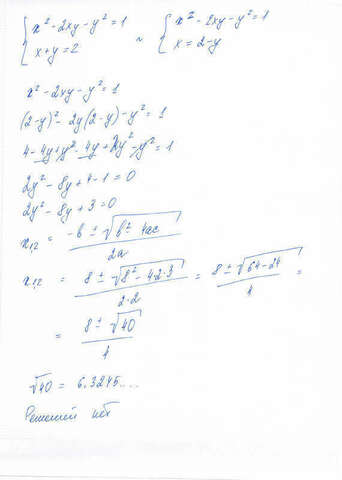 { x² - 2xy - y² = 1 ~ { x² - 2xy - y² = 1
{ x + y = 2 { x = 2 - y
x² - 2xy - y² = 1
(2-y)² - 2y(2-y) - y² = 1
4 - 4y + y² - 4y + 2y² - y² = 1
2y² - 8y + 4 - 1 = 0
2y² - 8y + 3 = 0
x₁,₂ = (-b ± √(b² - 4ac)) / 2a
x₁,₂ = (8 ± √(8² - 4·2·3)) / 2·2 = (8 ± √(64 - 24)) / 4 =
= (8 ± √40) / 4
√40 = 6.3245....
Решений нет